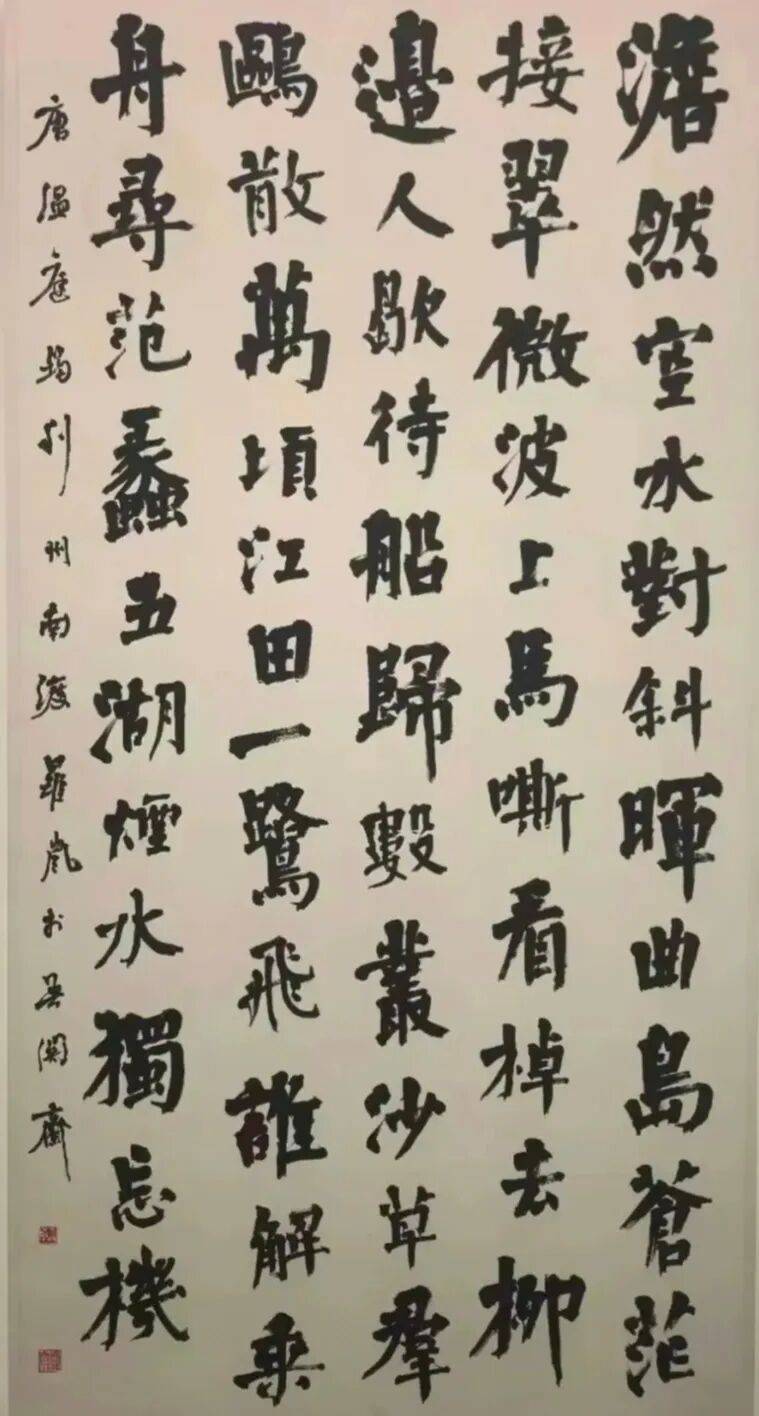 澹然空水對斜暉曲島蒼茫
接翠微波上馬嘶看棹去柳
邊人歇待船歸數叢沙草羣
鷗散萬頃江田一鷺飛誰解乘
舟尋范蠡五湖煙水獨忘機
唐温庭筠利州南渡羅於齋